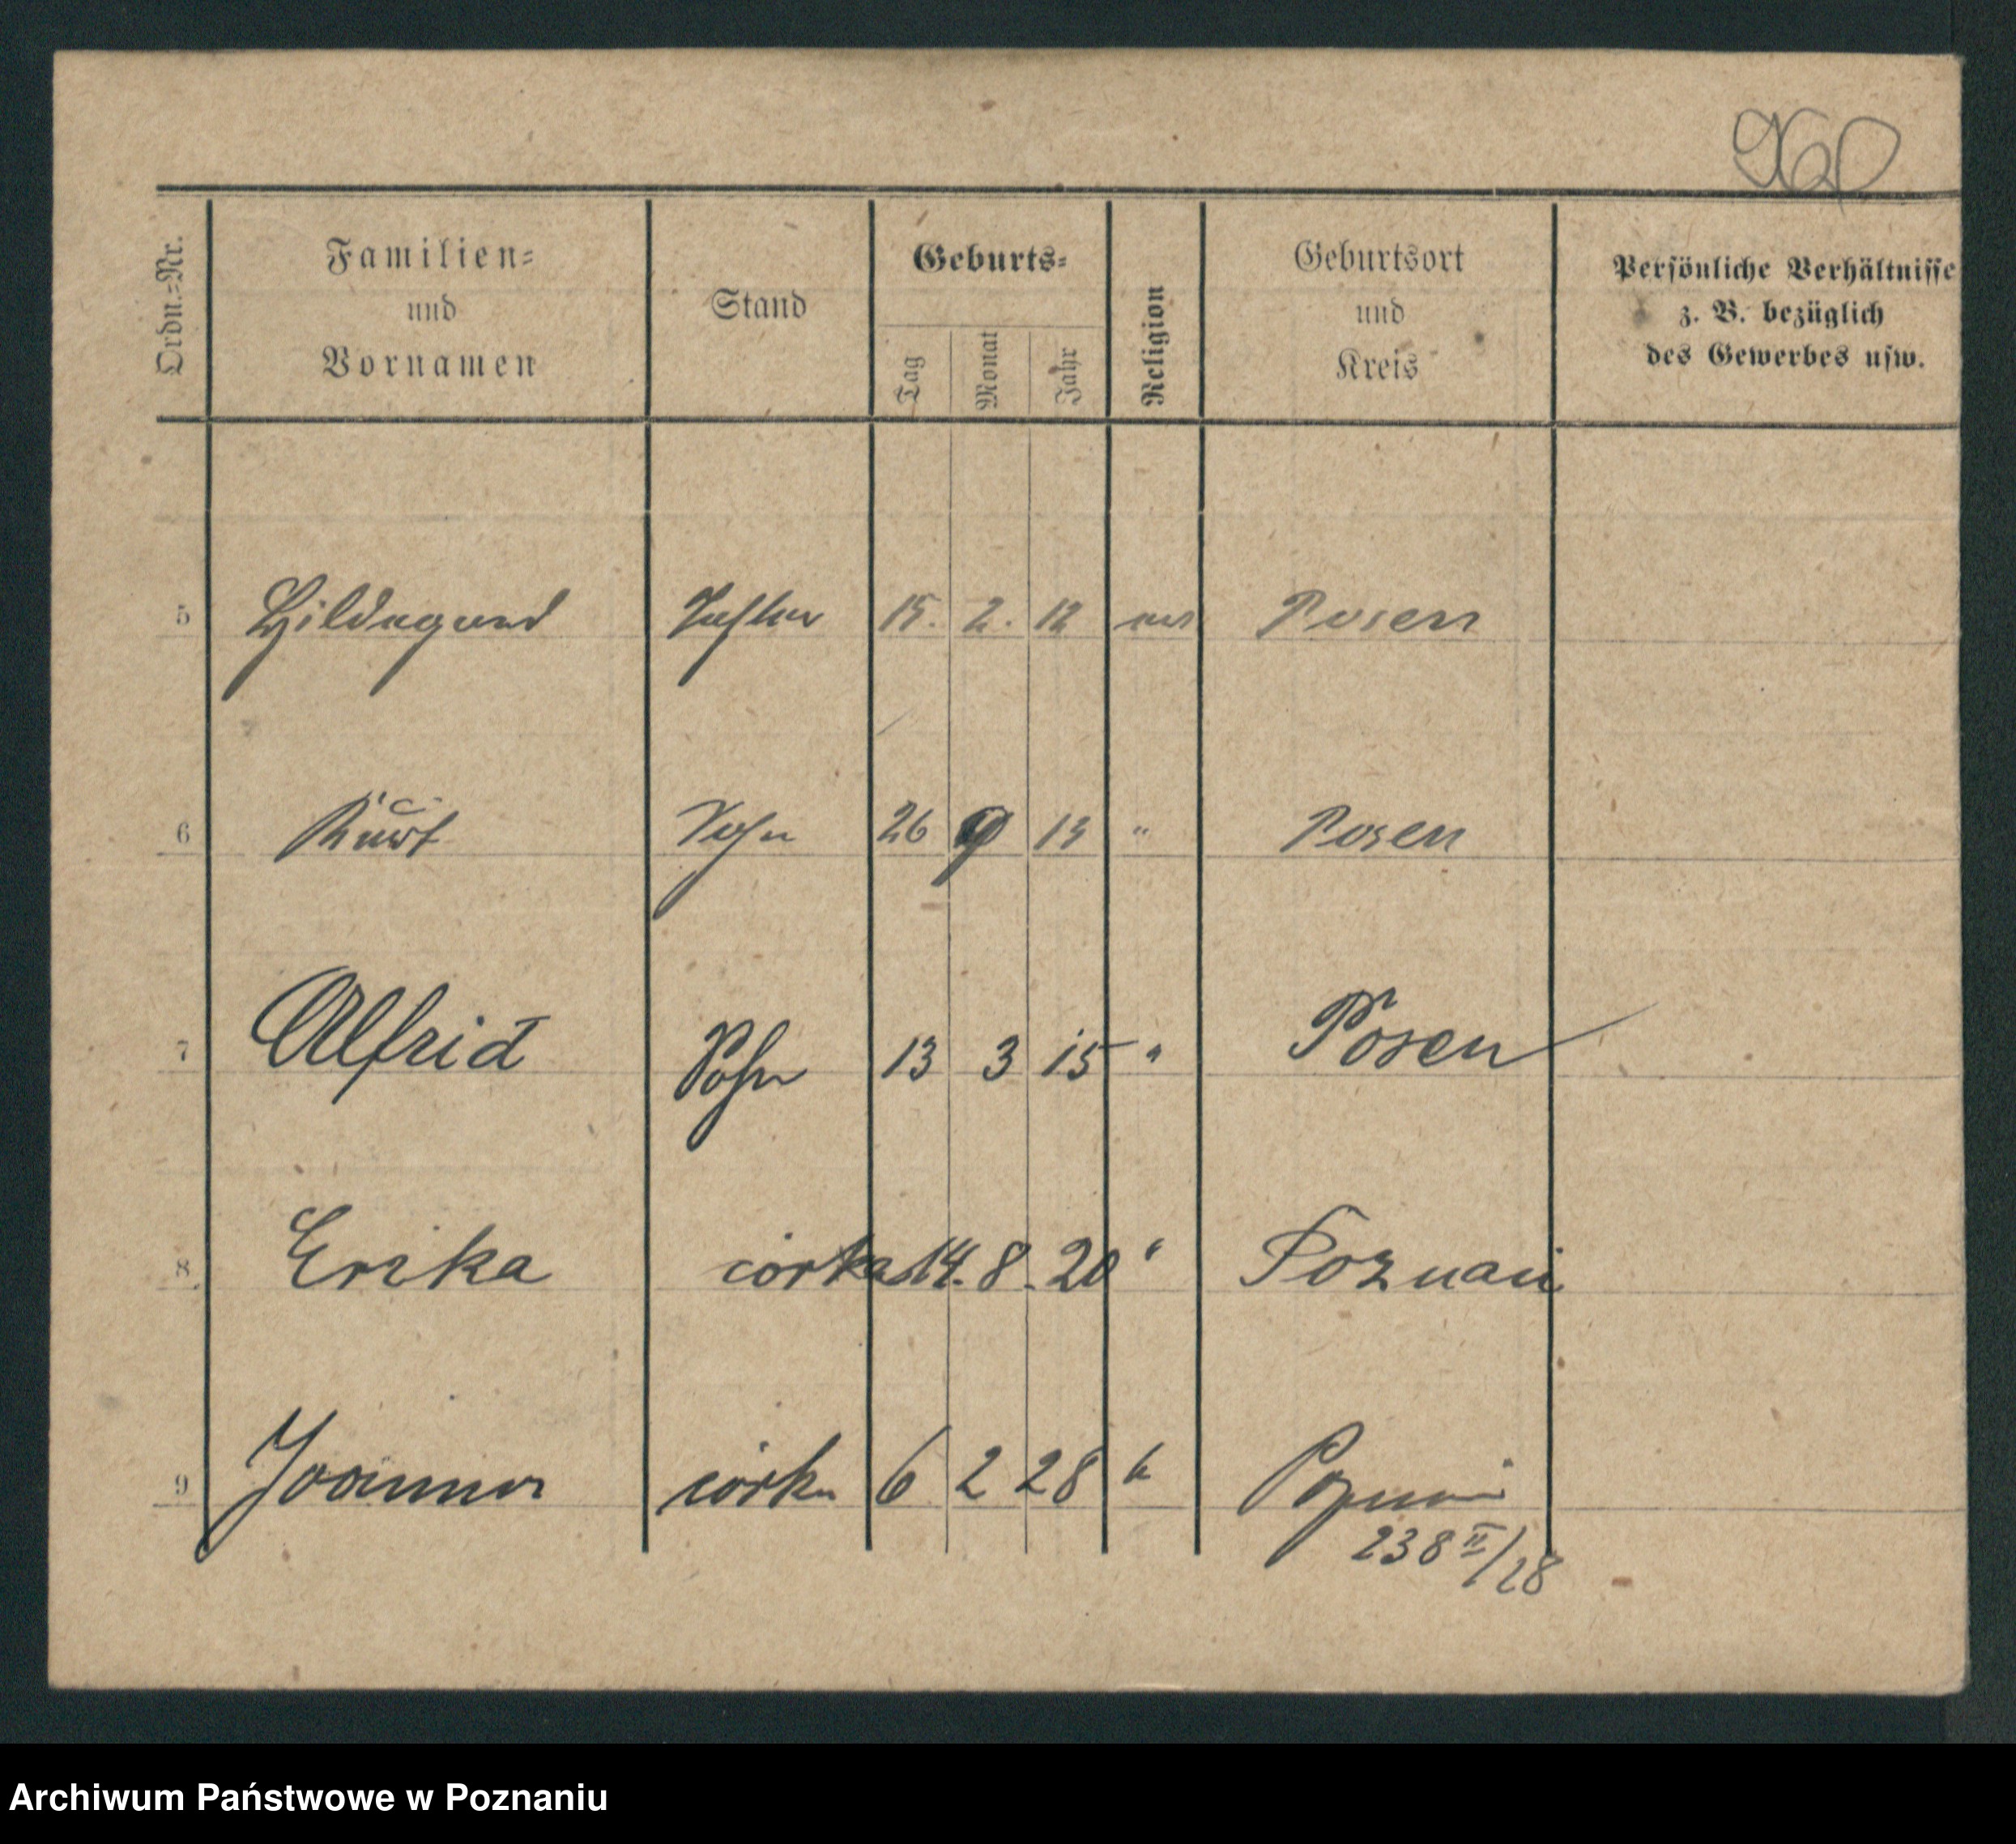 Ordn.=Nr.
Familien=
und
Vornamen
Stand
Geburts=
Tag
Monat
Jahr
Religion
Geburtsort
und
Kreis
Persönliche Verhältnisse
z. B. bezüglich
des Gewerbes usw.
5 Hildegard Tochter 15. 2. 12 Posen
6 Kurt Sohn 26 9 13 " Posen
7 Alfrid Sohn 13 3 15 " Posen
8 Erika córka 14. 8. 20 " Poznań
9 Joanna córka 6 2 28 " Poznań
238 II/28
Archiwum Państwowe w Poznaniu